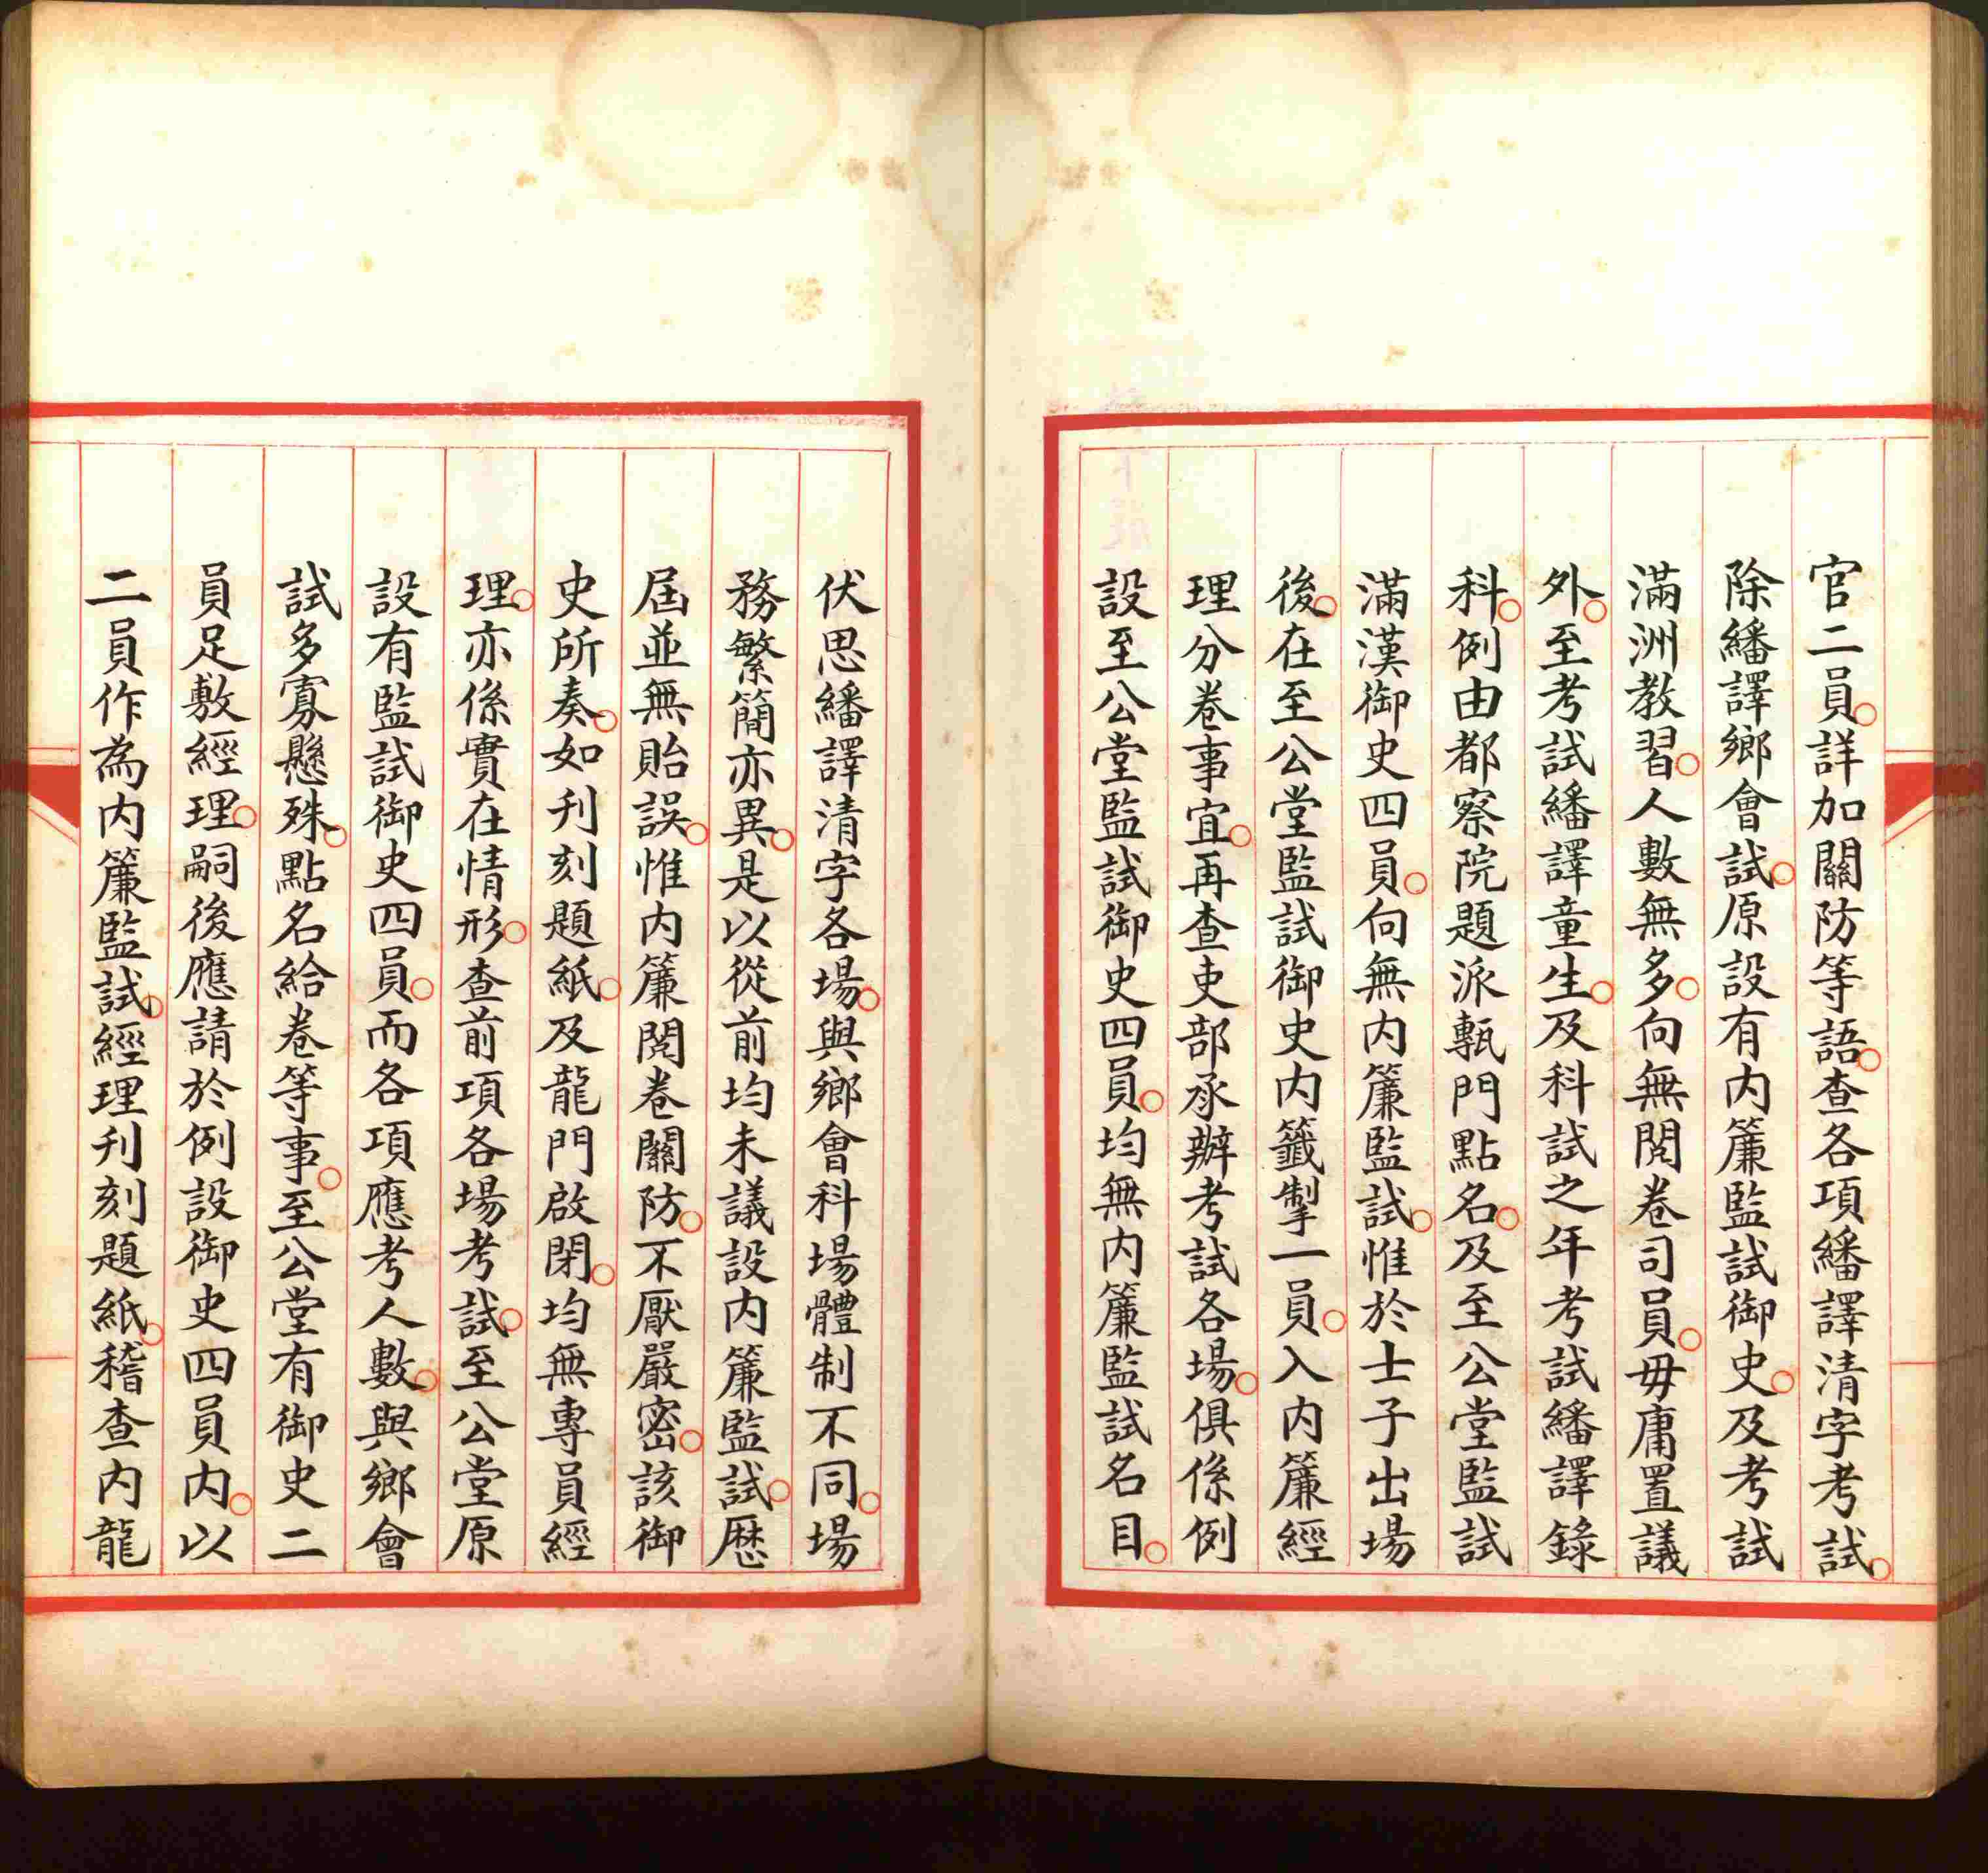 官二員○詳加關防等語○查各項繙譯清字考試○
除繙譯鄉會試○原設有内簾監試御史○及考試
滿洲教習○人數無多○向無閱卷司員○毋庸置議
外○至考試繙譯童生○及科試之年考試繙譯錄
科○例由都察院題派甎門點名○及至公堂監試
滿漢御史四員○向無内簾監試○惟於士子出場
後○在至公堂監試御史内籤掣一員○入内簾經
理分卷事宜○再查吏部承辦考試各場○俱係例
設至公堂監試御史四員○均無内簾監試名目○
伏思繙譯清字各場○與鄉會科場體制不同○場
務繁簡亦異○是以從前均未議設内簾監試○歷
屆並無貽誤○惟内簾閱卷關防○不厭嚴密○該御
史所奏○如刋刻題紙○及龍門啟閉○均無專員經
理○亦係實在情形○查前項各場考試○至公堂原
設有監試御史四員○而各項應考人數○與鄉會
試多寡懸殊○點名給卷等事○至公堂有御史二
員足敷經理○嗣後應請於例設御史四員内○以
二員作為内簾監試○經理刋刻題紙○稽查内龍